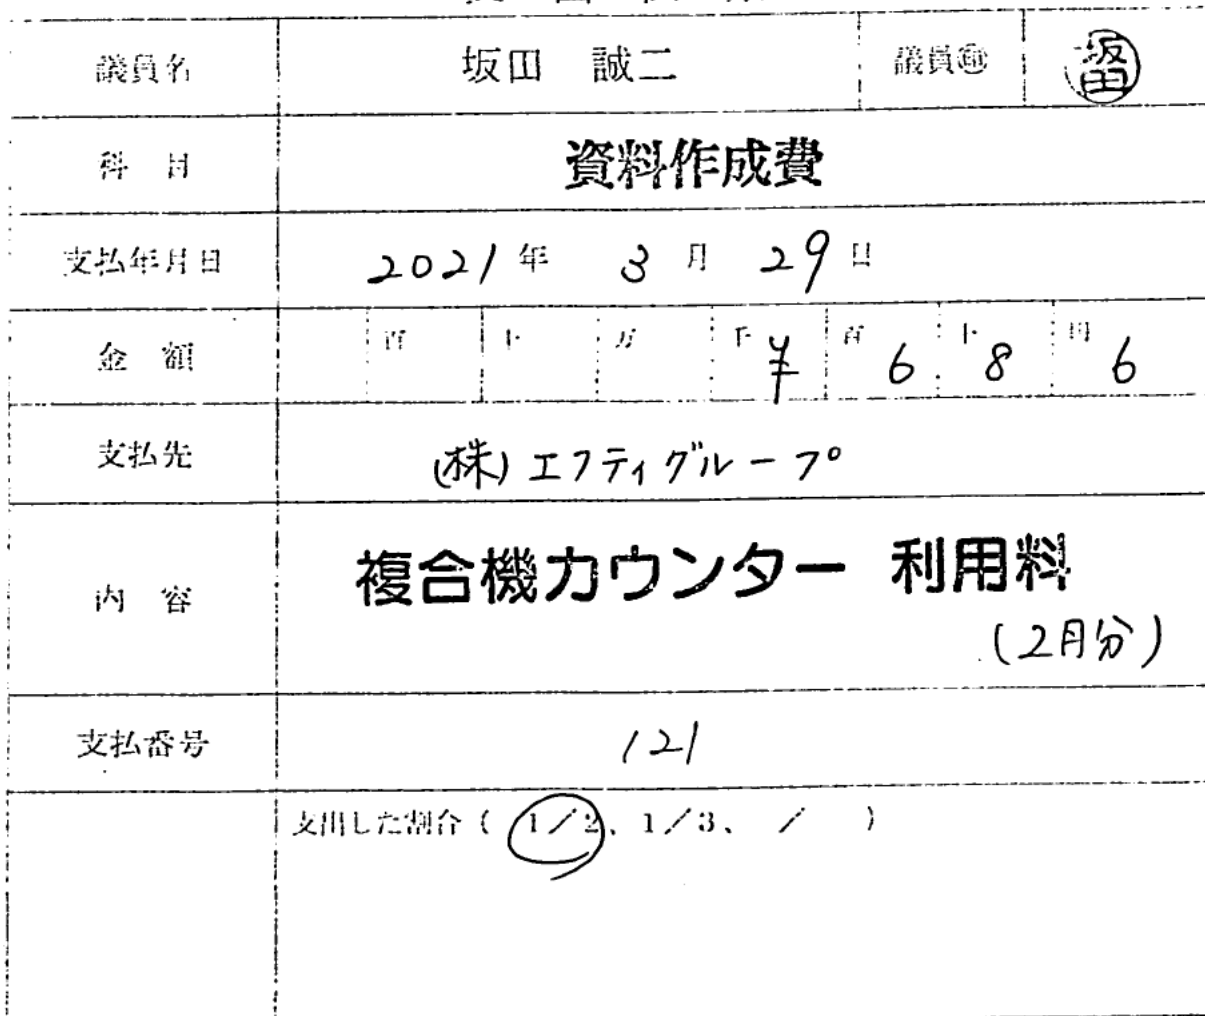 議員名 坂田 誠二 議員㊞ 坂田
科 目 資料作成費
支払年月日 2021年 3月 29日
金 額 百 十 万 千 ¥ 百 6 十 8 円 6
支払先 (株)エフティグループ
内 容 複合機カウンター 利用料
(2月分)
支払番号 121
支出した割合 ( 1/2、1/3、 / )